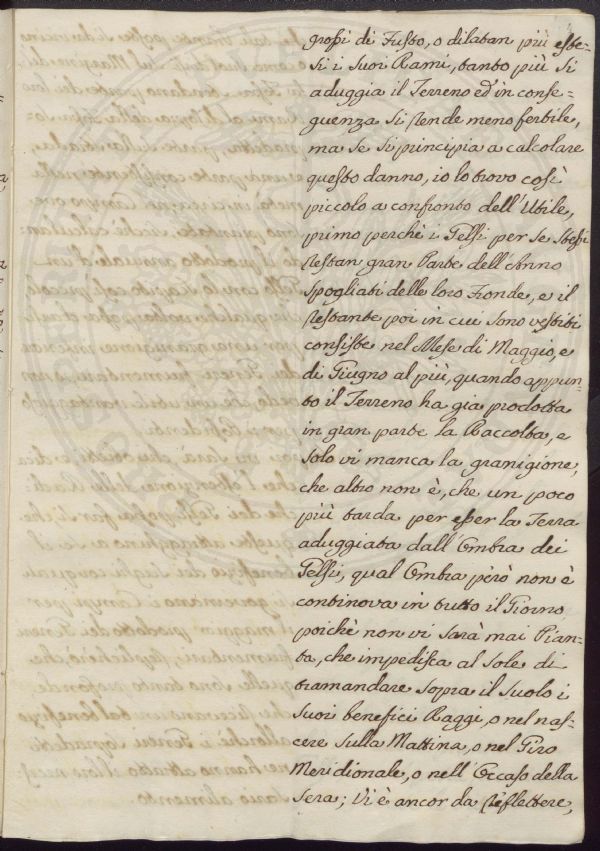 grossi di Fusto, o dilatan più este-
si i suoi Rami, tanto più si
aduggia il Terreno ed in conse-
guenza si rende meno fertile,
ma se si principia a calcolare
questo danno, io lo trovo così
piccolo a confronto dell'Utile,
primo perchè i Gelsi per se stessi
restan gran Parte dell'Anno
spogliati delle loro Fronde, e il
restante poi in cui sono vestiti
consiste nel Mese di Maggio, e
di Giugno al più, quando appun-
to il Terreno ha gia prodotta
in gran parte la Raccolta, e
solo vi manca la granigione,
che altro non è, che un poco
più tarda per esser la Terra
aduggiata dall'Ombra dei
Gelsi, qual Ombra però non è
continova in tutto il Giorno
poichè non vi sarà mai Pian-
ta, che impedisca al Sole di
tramandare sopra il suolo i
suoi benefici Raggi, o nel nas-
cere sulla Mattina, o nel Giro
Meridionale, o nell'Occaso della
sera; Vi è ancor da riflettere,